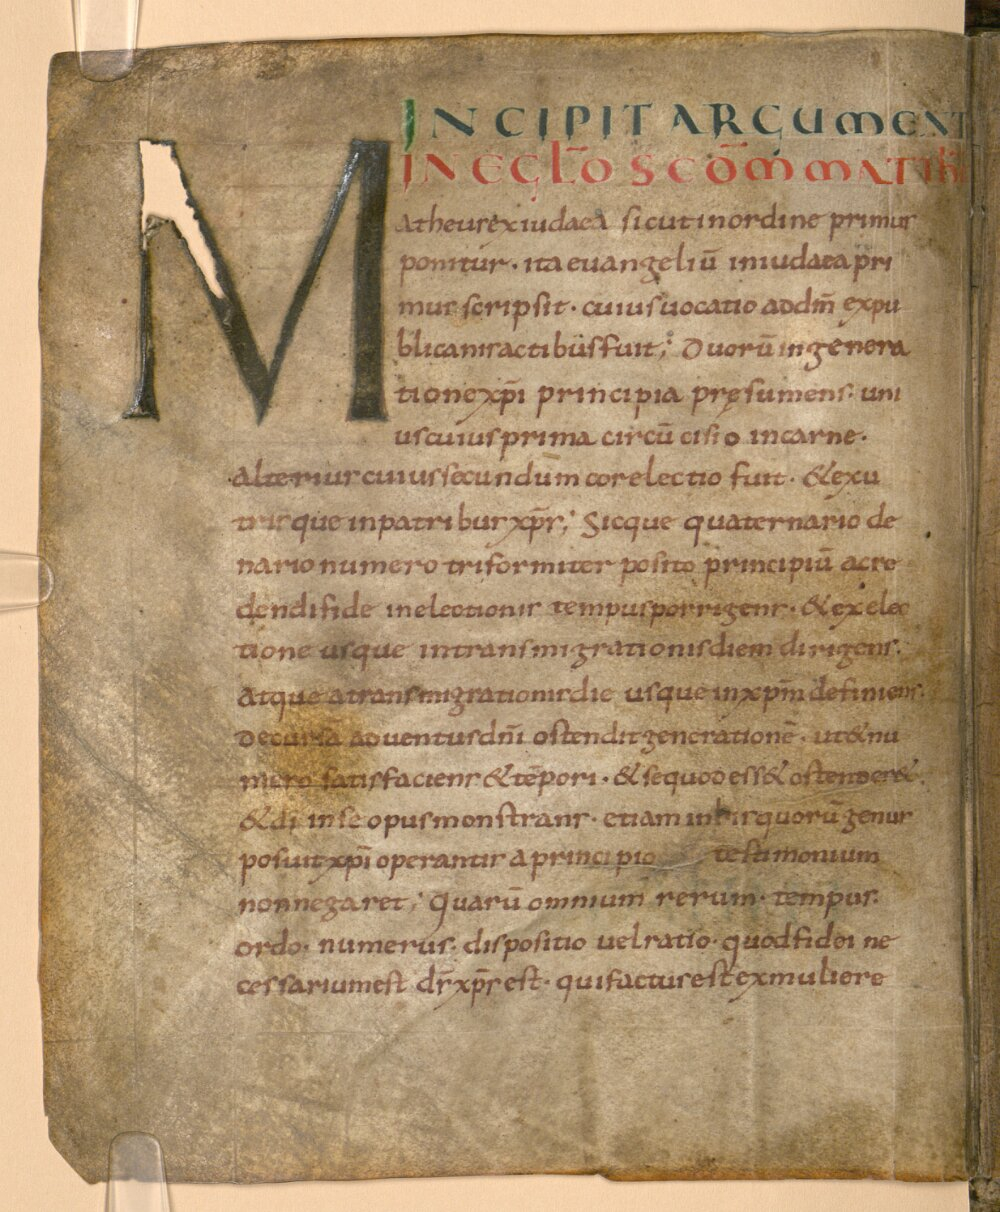 INCIPIT ARGUMENT
IN EGLOS SCĒM MATTH
Matheus ex iudaea sicut in ordine primus
ponitur · ita euangeliū in iudaea pri
mus scripsit · cuius uocatio ad dm̄ ex pu
blicanis actibus fuit; Duorū in genera
tione xp̄i principia pręsumens · uni
us cuius prima circūcisio in carne ·
alterius cuius secundum cor electio fuit · & ex u
trisque in patribus xp̄s; Sicque quaternario de
nario numero triformiter posito principiū a cre
dendi fide in electionis tempus porrigens · & ex elec
tione usque in transmigrationis diem dirigens ·
atque a transmigrationis die usque in xp̄m definiens ·
decursā aduentus dn̄i ostendit generationē · ut & nu
mero satisfaciens & tēpori · & se quod ess& ostender& ·
& di in se opus monstrans · etiam in his quorū genus
posuit xp̄i operantis a principio testimonium
non negaret; Quarū omnium rerum · tempus ·
ordo · numerus · dispositio uel ratio · quod fidei ne
cessarium est ds̄ xp̄s est · qui factus est ex muliere